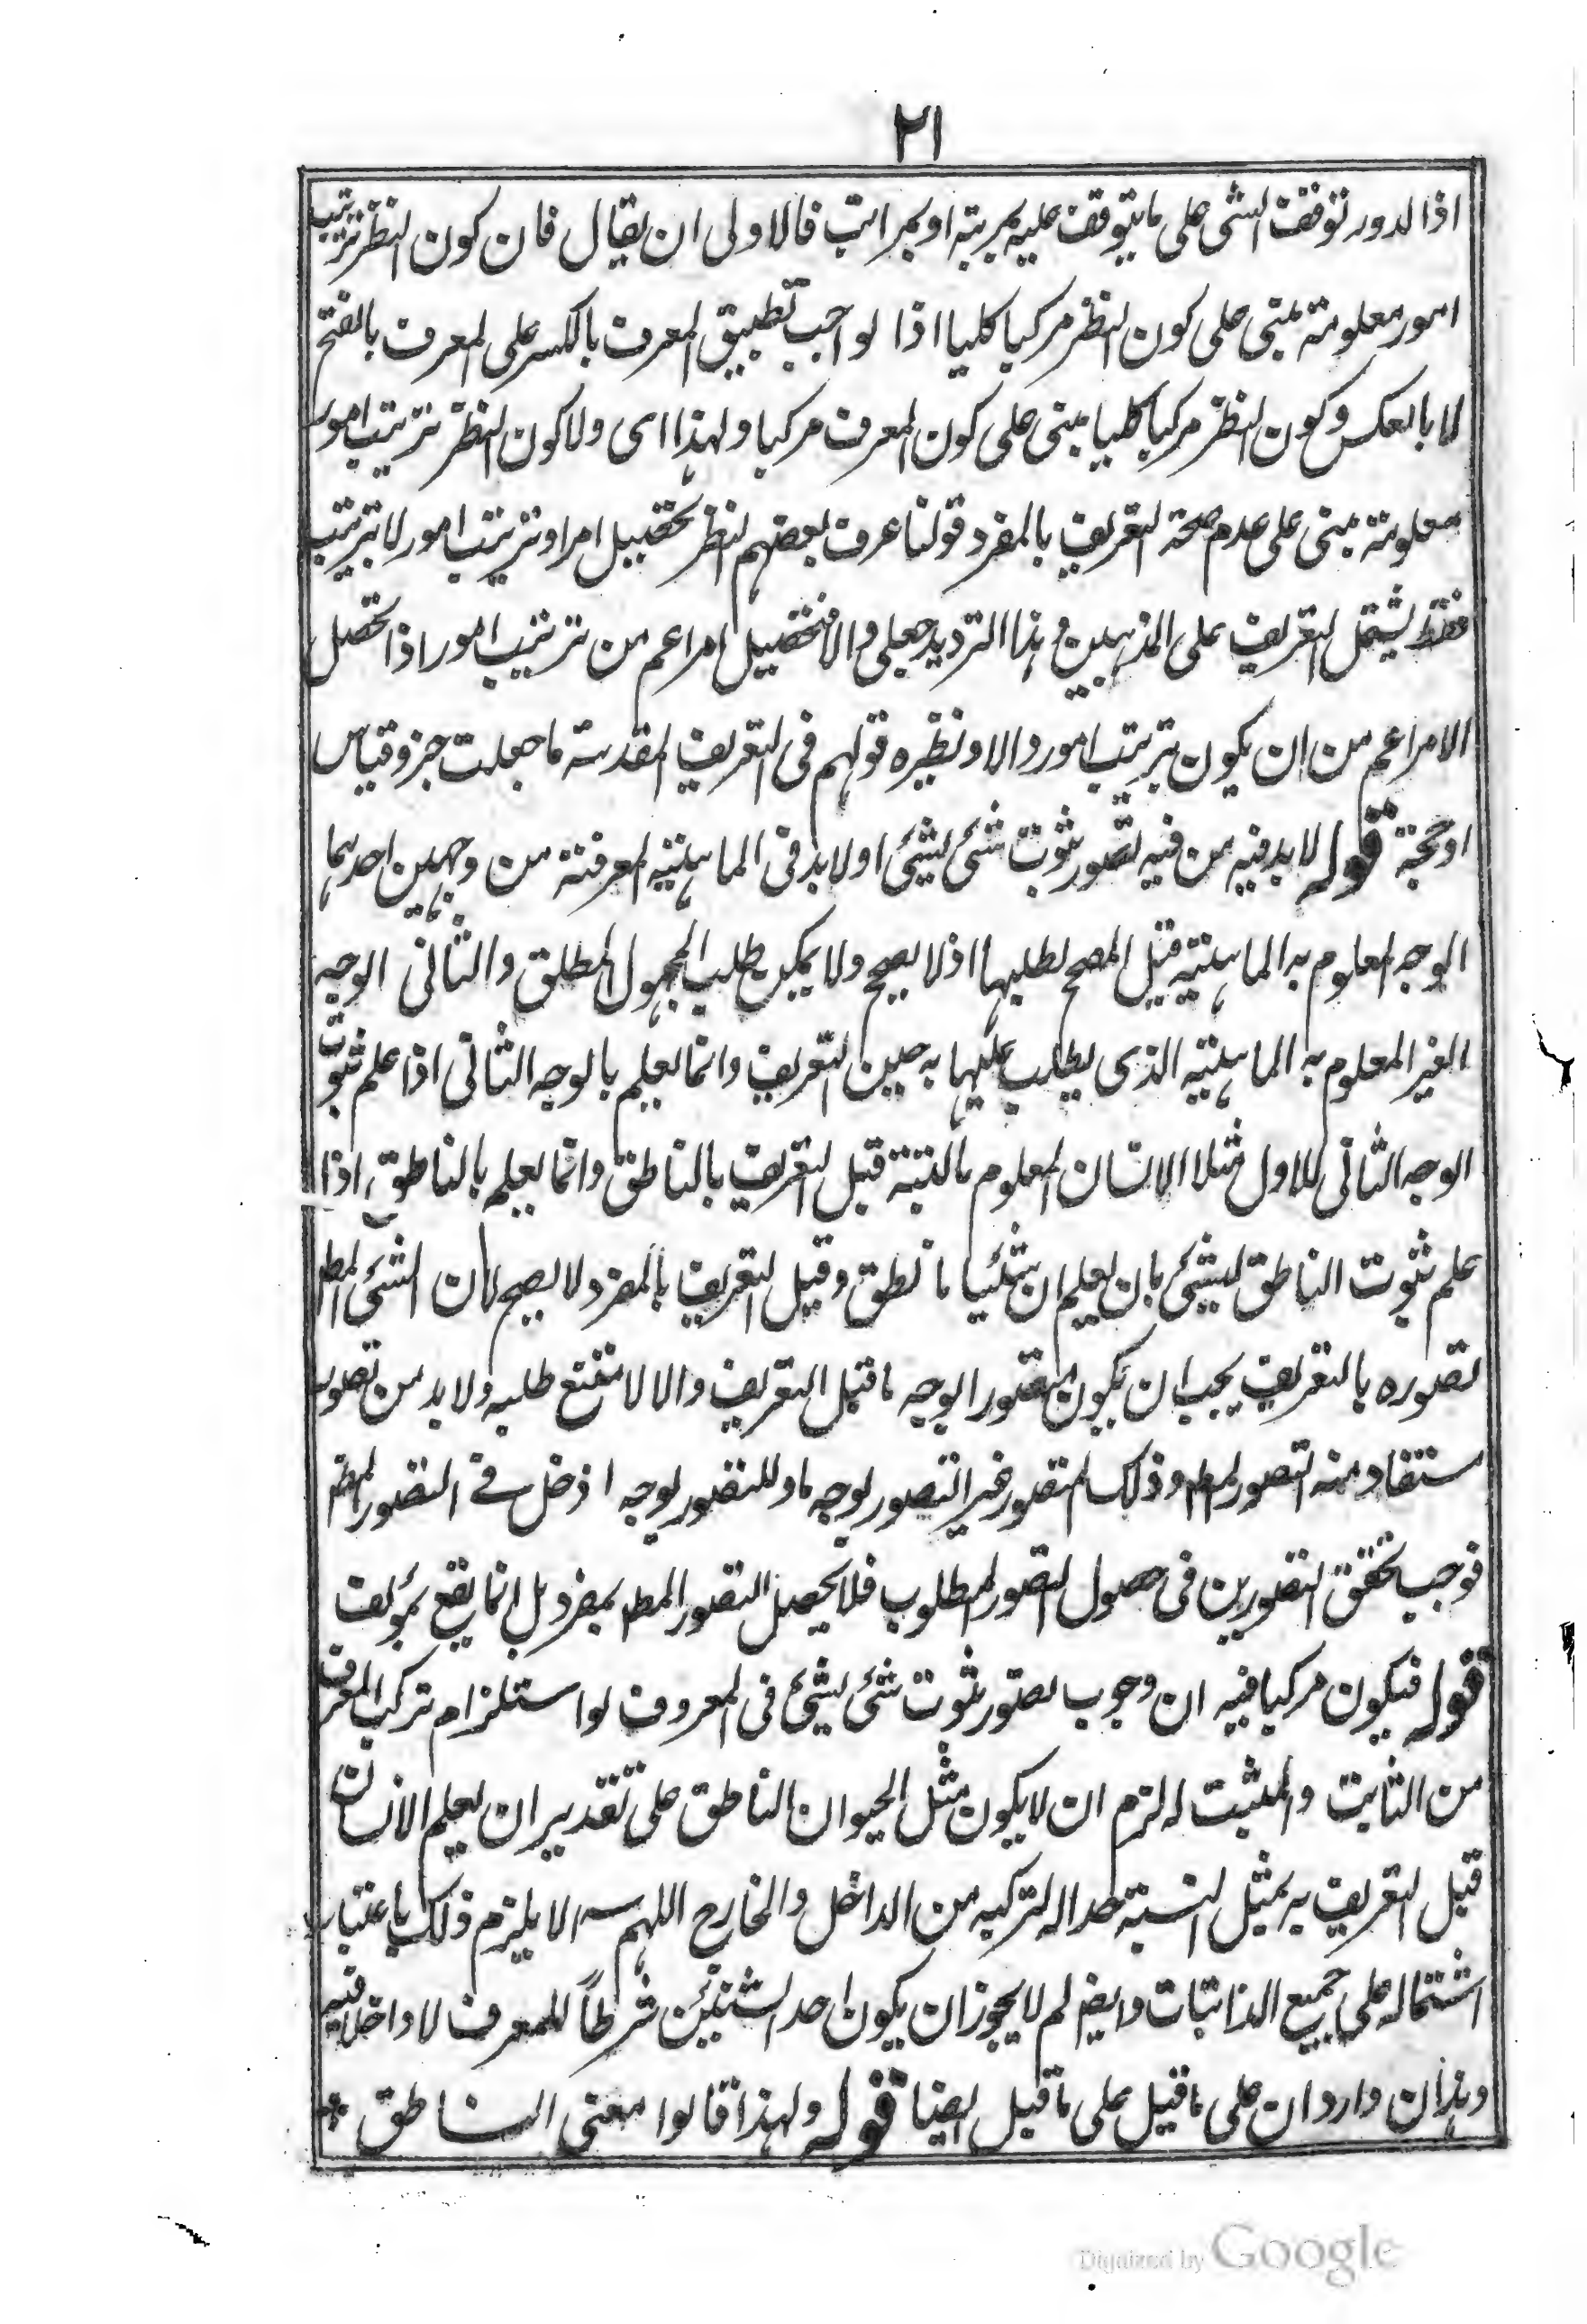 ٢١
اذا لدور توقف الشی علی ما یتوقف علیه بمرتبه او بمراتب فالاولی ان یقال فان کون النظر ترتیب
امور معلومة مبنی علی کون النظر مرکبا کلیا اذا لواجب تطبیق المعرف بالکسر علی المعرف بالفتح
لا بالعکس و کون النظر مرکبا کلیا مبنی علی کون المعرف مرکبا ولهذا ای ولا کون النظر ترتیب امور
معلومة مبنی علی عدم صحة التعریف بالمفرد قولنا عرف بعضهم النظر بتحصیل امر او ترتیب امور لا بترتیب
فقط لیشتمل التعریف علی المذهبین و هذا التردید جعلی والا فتحصیل امر اعم من ترتیب امور اذا تحصل
الامر اعم من ان یکون بترتیب امور والا و نظیره قولهم فی التعریف المقدمة ما جعلت جزو قیاس
او حجة قوله لابد فیه من فیه تصور ثبوت شئ لشئ او لابد فی الماهیة المعرفة من وجهین احدهما
الوجه المعلوم به الماهیة قبل المصحح لطلبها اذ لا یصح ولا یمکن طلب المجهول المطلق والثانی الوجه
الغیر المعلوم به الماهیة الذی یطلب علیها به حین التعریف وانما یعلم بالوجه الثانی اذا علم ثبوت
الوجه الثانی للاول مثلا الانسان المعلوم بالکتبة قبل التعریف بالناطق وانما یعلم بالناطق اذا
علم ثبوت الناطق لشئ بان یعلم ان شیئا ما نطق وقیل التعریف بالمفرد لا یصح لان الشئ المط
تصوره بالتعریف یجب ان یکون متصورا بوجه ما قبل التعریف والا لامتنع طلبه ولابد من تصور
مستفاد منه التصور المط وذلک المتصور غیر التصور بوجه ما وللتصور بوجه ا دخل فے التصور المط
فوجب تحقق التصورین فی حصول التصور المطلوب فلا یحصل التصور المط بمفرد بل انما یقع بمولف
قوله فیکون مرکبا فیه ان وجوب تصور ثبوت شئ لشئ فی المعروف لو استلزام ترکب المعرف
من الثابت والمثبت له لزم ان لا یکون مثل الحیوان الناطق علی تقدیر ان یعلم الانسان
قبل التعریف به بمثل النسبة حدا له لترکبه من الداخل والخارج اللهم الا یلزم ذلک باعتبار
اشتماله علی جمیع الذاتیات وایضا لم لا یجوز ان یکون احد الشیئین شرطاً للمعرف لا داخلا فیه
وهذان واردان علی ما قیل علی ما قبل ایضا قوله ولهذا قالوا معنی الناطق *
Digitized by Google